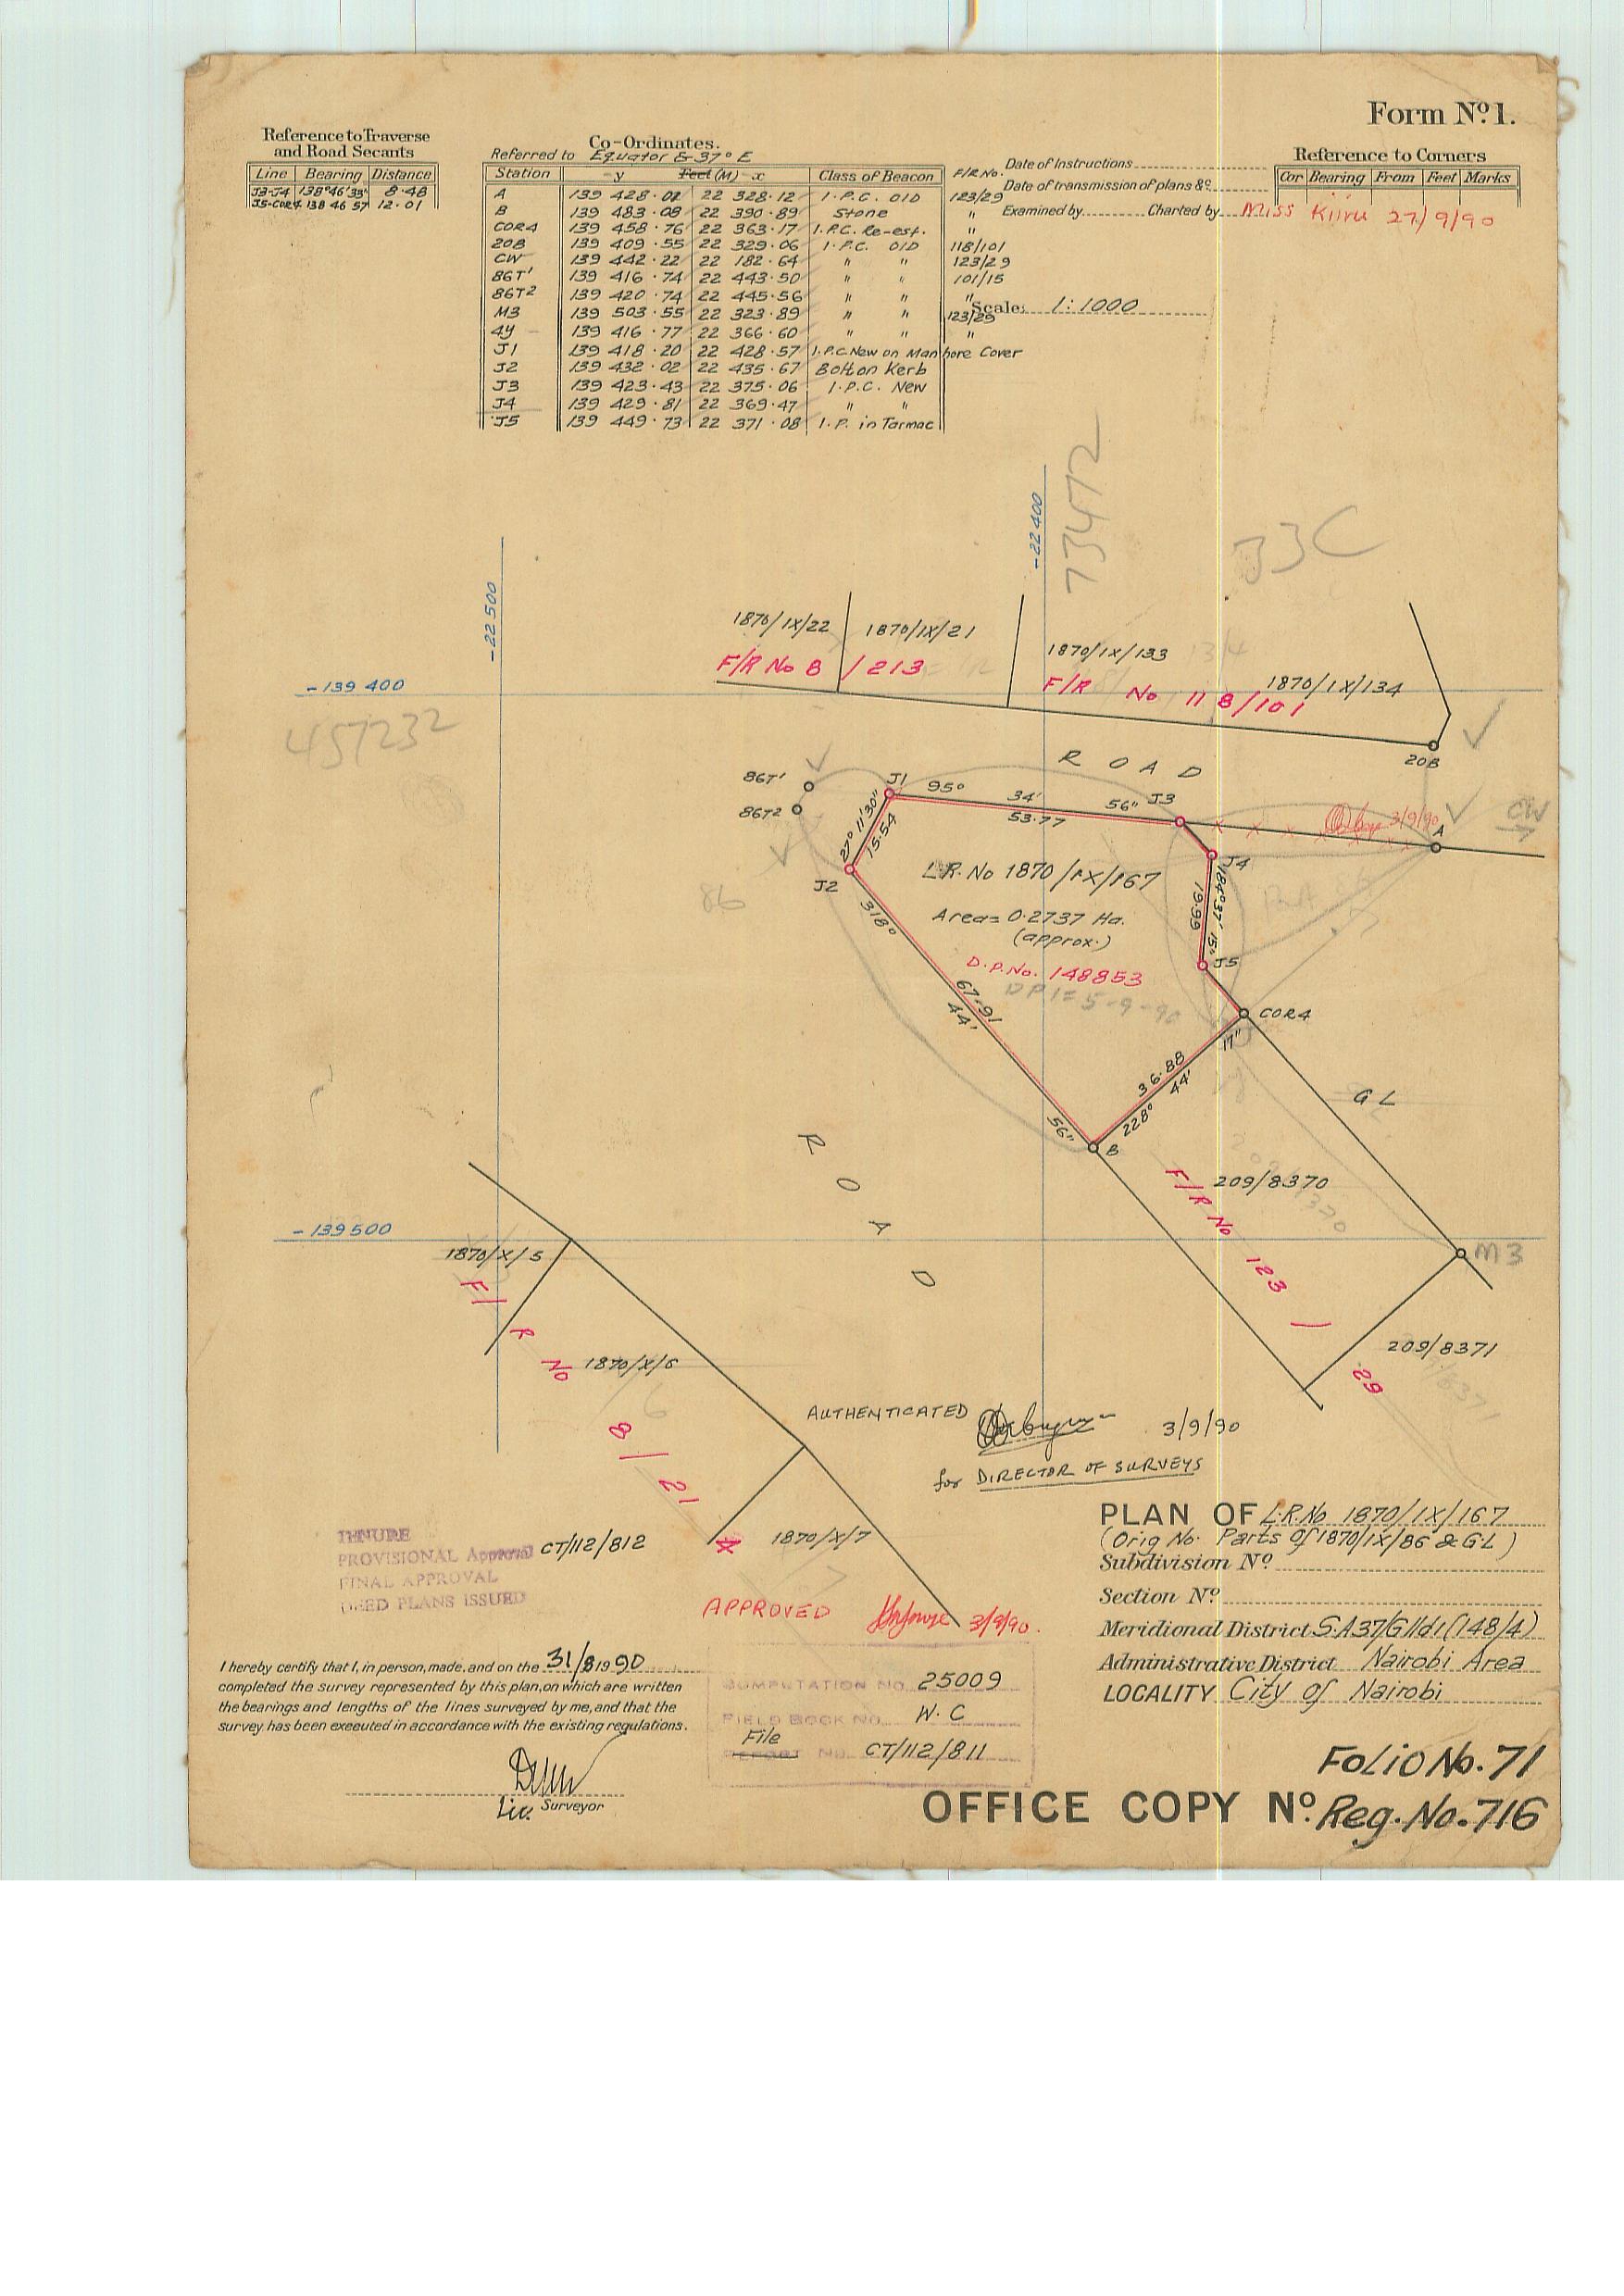 Form No. 1.
Reference to Traverse
and Road Secants
Line Bearing Distance
J3-J4 138°46'33" 8·48
J5-COR4 138 46 57 12·01
Co-Ordinates.
Referred to Equator & 37° E
Station y Feet (M) x Class of Beacon F/R No.
A 139 428·02 22 328·12 I.P.C. OlD 123/29
B 139 483·08 22 390·89 Stone "
COR4 139 458·76 22 363·17 I.P.C. Re-est. "
20B 139 409·55 22 329·06 I.P.C. OlD 118/101
CW 139 442·22 22 182·64 " " 123/29
86T' 139 416·74 22 443·50 " " 101/15
86T2 139 420·74 22 445·56 " " "
M3 139 503·55 22 323·89 " " 123/29
4Y 139 416·77 22 366·60 " " "
J1 139 418·20 22 428·57 I.P.C. New on Manhore Cover
J2 139 432·02 22 435·67 Bolt on Kerb
J3 139 423·43 22 375·06 I.P.C. New
J4 139 429·81 22 369·47 " "
J5 139 449·73 22 371·08 I.P. in Tarmac
Date of Instructions
Date of transmission of plans &c.
Examined by Charted by Miss Kiiru 27/9/90
Scale: 1:1000
Reference to Corners
Cor Bearing From Feet Marks
73472
33C
-22 500
-22 400
1870/IX/22 1870/IX/21
F/R No 8 / 213
1870/IX/133
1870/IX/134
F/R No 118/101
-139 400
457232
ROAD
20B
86T'
86T2
J1
95° 34' 56"
53·77
J3
3/9/90
A
CW
27° 11' 30"
15·54
J2
J4
L.R. No 1870/IX/167
184° 37' 15"
19·99
86
Area= 0·2737 Ha.
(approx.)
J5
D.P. No. 148853
DP 1= 5-9-90
318° 44' 56"
67·91
COR4
36·88
228° 44' 17"
B
GL
ROAD
209/8370
F/R No 123/29
-139 500
M3
1870/X/5
F/R No 8/214
1870/X/6
209/8371
AUTHENTICATED 3/9/90
for DIRECTOR OF SURVEYS
1870/X/7
CT/112/812
TENURE
PROVISIONAL Approval
FINAL APPROVAL
DEED PLANS ISSUED
APPROVED 3/9/90.
PLAN OF L.R. No 1870/IX/167
(Orig No. Parts of 1870/IX/86 & GL)
Subdivision No.
Section No.
Meridional District S.A37/G11d1 (148/4)
Administrative District Nairobi Area
LOCALITY City of Nairobi
I hereby certify that I, in person, made, and on the 31/8 1990
completed the survey represented by this plan, on which are written
the bearings and lengths of the lines surveyed by me, and that the
survey has been executed in accordance with the existing regulations.
Lic. Surveyor
COMPUTATION NO. 25009
FIELD BOOK NO. W.C
File
REPORT NO. CT/112/811
Folio No. 71
OFFICE COPY No. Reg. No. 716